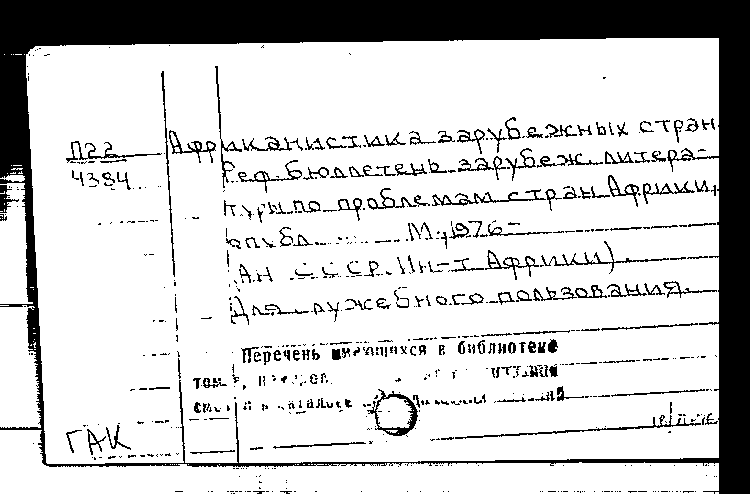 П22 Африканистика зарубежных стран.
4384 Реф. бюллетень зарубеж. литера-
туры по проблемам стран Африки,
опубл. ... М., 1976-
(АН СССР. Ин-т Африки).
Для служебного пользования.
Перечень имеющихся в библиотеке
том
каталоге
ГАК